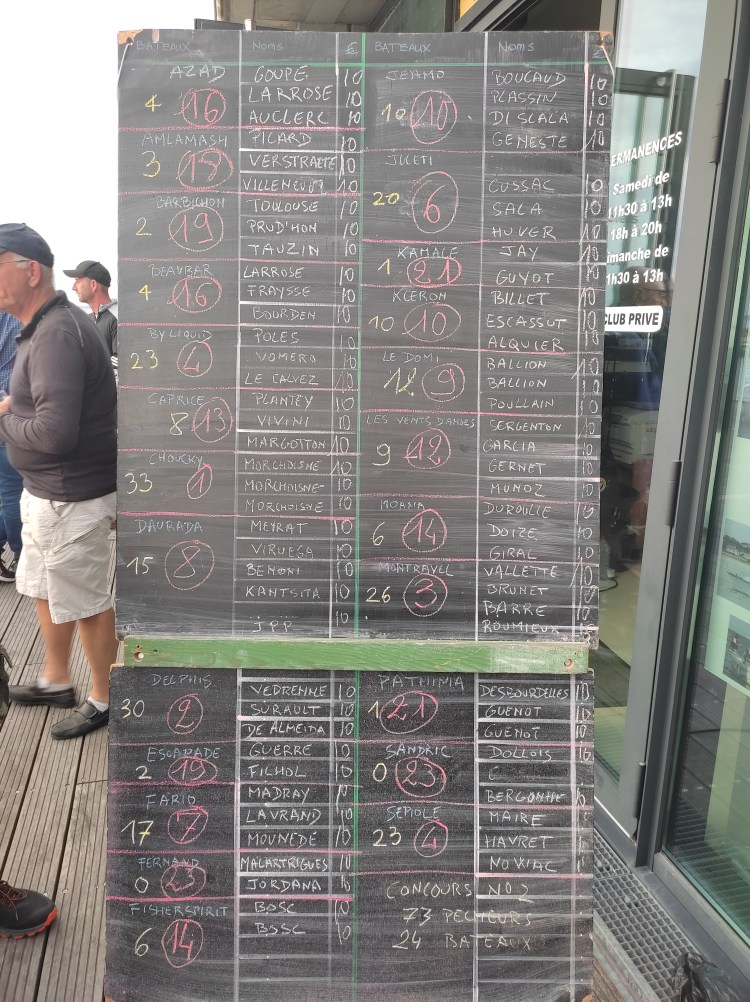 BATEAUX NOMS £
AZAD GOUPÉ 10
4 16 LARROSE 10
AUCLERC 10
AMLAMASH PICARD 10
3 18 VERSTRAETE 10
VILLENEUVE 10
BARBICHON TOULOUSE 10
2 19 PRUD'HON 10
TAUZIN 10
BEAUBAR LARROSE 10
4 16 FRAYSSE 10
BOURDEN 10
BY LIQUID POLES 10
23 4 VOMERO 10
LE CALVEZ 10
CAPRICE PLANTEY 10
8 13 VIVINI 10
MARGOTTON 10
CHOUCKY MORCHOISNE 10
33 1 MORCHOISNE 10
MORCHOISNE 10
DAURADA MEYRAT 10
15 8 VIRUEGA 10
BENONI 10
KANTSITA 10
JPP 10
BATEAUX NOMS £
JEAMO BOUCAUD 10
10 10 PLASSIN 10
DI SCALA 10
GENESTE 10
JULETI
20 6 CUSSAC 10
SALA 10
HUVER 10
KAMALE JAY 10
1 21 GUYOT 10
KCERON BILLET 10
10 10 ESCASSUT 10
ALQUIER 10
LE DOMI BALLION 10
12 9 BALLION 10
POULLAIN 10
LES VENTS D'ANGES SERGENTON 10
9 12 GARCIA 10
GERNET 10
MUNOZ 10
MOANA DUROULLE 10
6 14 DOIZE 10
GIRAL 10
MONTRAVEL VALLETTE 10
26 3 BRUNET 10
BARRE 10
ROUMIEUX
DELPHIS VEDRENNE 10
30 2 SURAULT 10
DE ALMEIDA 10
ESCAPADE GUERRE 10
2 19 FILHOL 10
FARIO MADRAY 10
17 7 LAVRAND 10
MOUNEDÉ 10
FERNAND MALARTRIGUES 10
0 23 JORDANA 10
FISHERSPIRIT BOSC 10
6 14 BOSC 10
PATHINIA DESBOURDELLES 10
1 21 GUENOT 10
GUENOT 10
SANDRIC DOLLOIS 10
0 23 C
BERGONHE 10
SEPIOLE MAIRE
23 4 HAVRET
NOWIAC
CONCOURS N°2
73 PECHEURS
24 BATEAUX
ERMANENCES
Samedi de
11h30 à 13h
18h à 20h
imanche de
1h30 à 13h
CLUB PRIVE